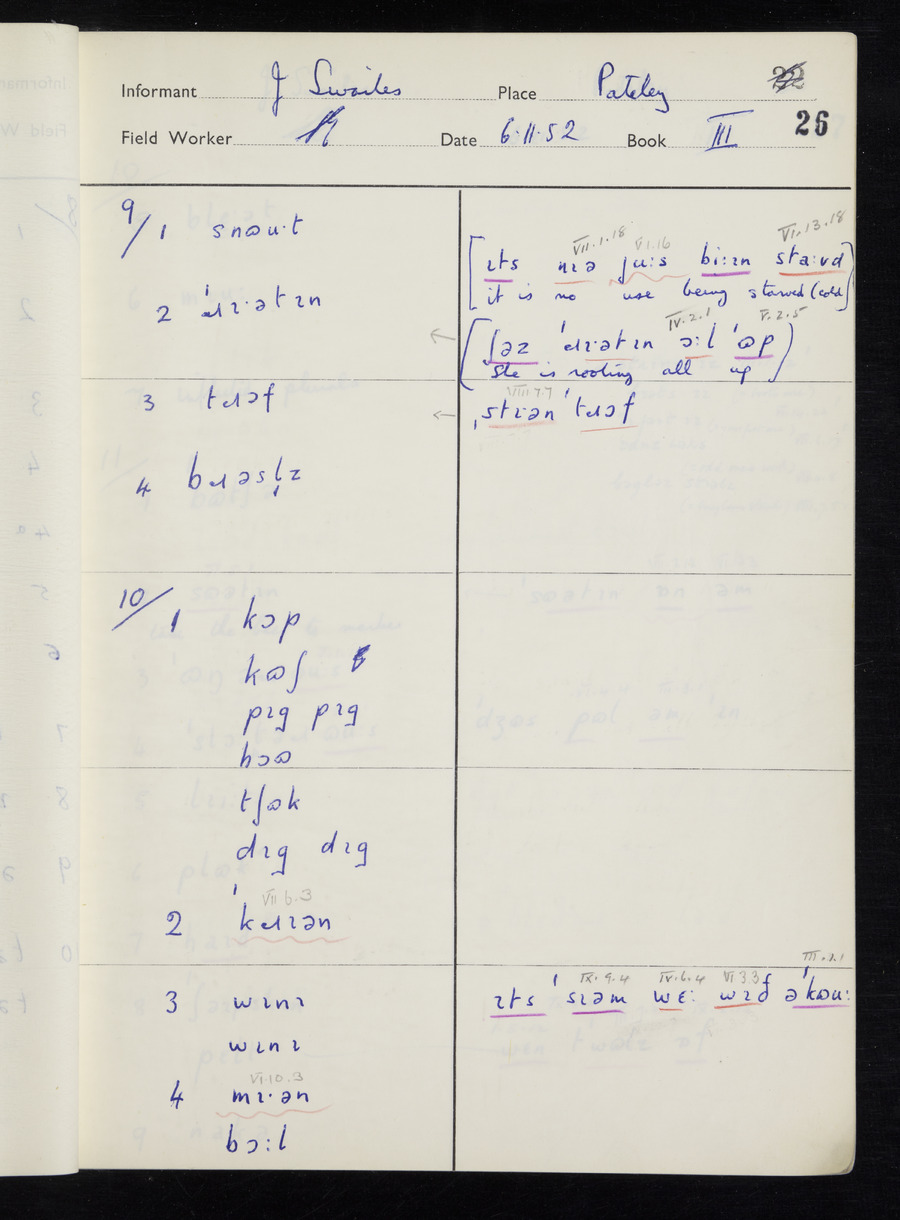 Informant J Swailes Place Pateley 22
Field Worker Date 6.11.52 Book III 26
9/1 snɷu·t
VII.1.18 VI.16 VI.13.18
[ɪts nɪə ju:s bi:ɪn sta:vd
it is no use being starved (cold)]
2 ˈɹɪ·ətɪn
IV.2.1 V.2.5
← (ʃəz ˈɹɪ·ətɪn ɔ:l ˈɷp)
She is rooting all up
3 tɹɔf
VIII.7.7
← ˌstɪən ˈtɹɔf
4 bɹəsl̩z
10/1 kɔp
kɷʃ
pɪg pɪg
hɔɷ
tʃɷk
dɪg dɪg
VII 6.3
2 ˈkɹɪən
III.1.1
3 wɪnɪ
IX.9.4 IV.6.4 VI 3.3
ɪts ˈsɪəm wɛ: wɪð əˈkɷu:
wɪnɪ
VI.10.3
4 mɪ·ən
bɔ:l